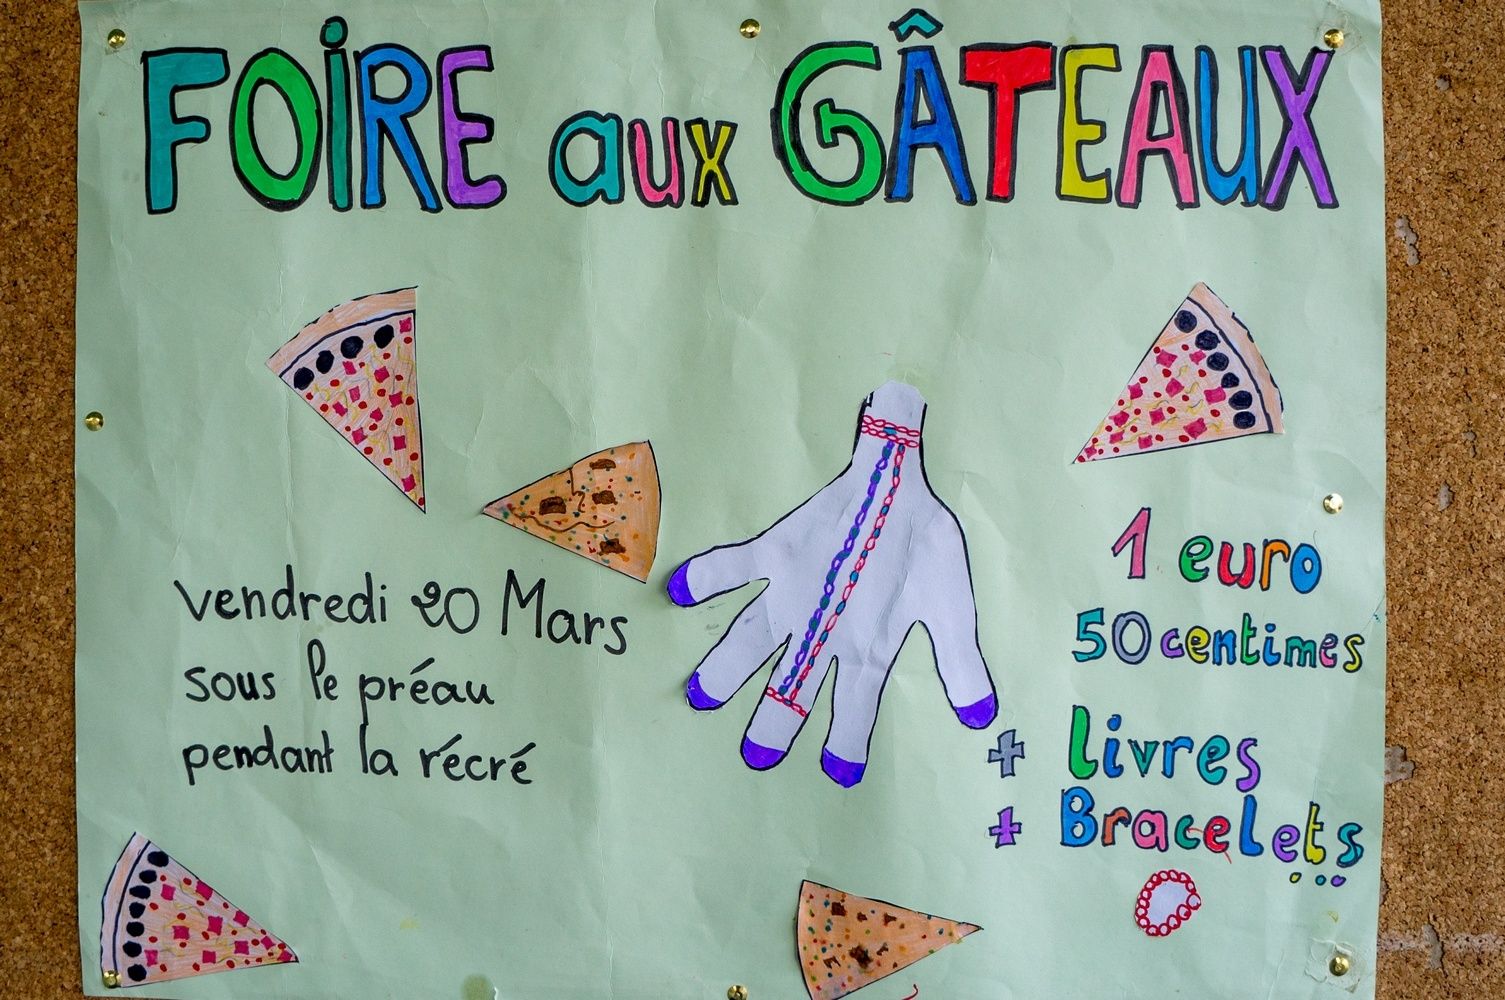 FOIRE aux GÂTEAUX
vendredi 20 Mars
sous le préau
pendant la récré
1 euro
50 centimes
+ Livres
+ Bracelets...